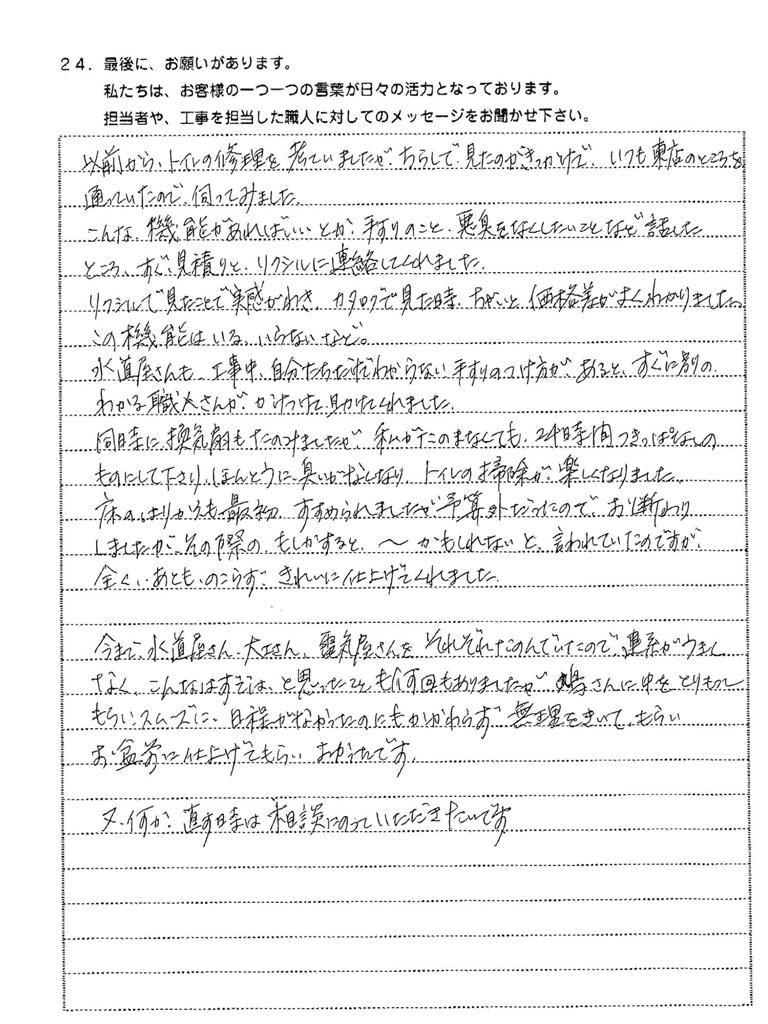 ２４．最後に、お願いがあります。
私たちは、お客様の一つ一つの言葉が日々の活力となっております。
担当者や、工事を担当した職人に対してのメッセージをお聞かせ下さい。
以前から、トイレの修理を考ていましたが、ちらしで見たのがきっかけで、いつも東店のところを
通っていたので、伺ってみました。
こんな、機能があればいいとか、手すりのこと、悪臭をなくしたいことなど話した
ところ、すぐ、見積りと、リクシルに連絡してくれました。
リクシルで見たことで実感がわき、カタログで見た時、ちがいと、価格差がよくわかりました。
この機能はいる、いらないなど。
水道屋さんも、工事中、自分たちだけだわからない手すりのつけ方が、あると、すぐに別の
わかる職人さんが、かけつけて助けてくれました。
同時に、換気扇もたのみましたが、私がたのまなくても、24時間つきっぱなしの
ものにして下さり、ほんとうに、臭いがなくなり、トイレの掃除が、楽しくなりました。
床のはりかえも最初、すすめられましたが予算外だったので、お断わり
しましたが、その際の、もしかすると、〜かもしれないと、言われていたのですが、
全く、あとも、のこらず、きれいに仕上げてくれました。
今まで、水道屋さん、大工さん、電気屋さんを、それぞれたのんでいたので、連系がうまく
なく、こんなはずでは、と思ったことも何回もありましたが、さんに中をとりもって
もらい、スムーズに、日程がなかったのにもかかわらず、無理をきいて、もらい
お盆前に仕上げてもらい
又、何か、直す時は、相談にのっていただきたいです